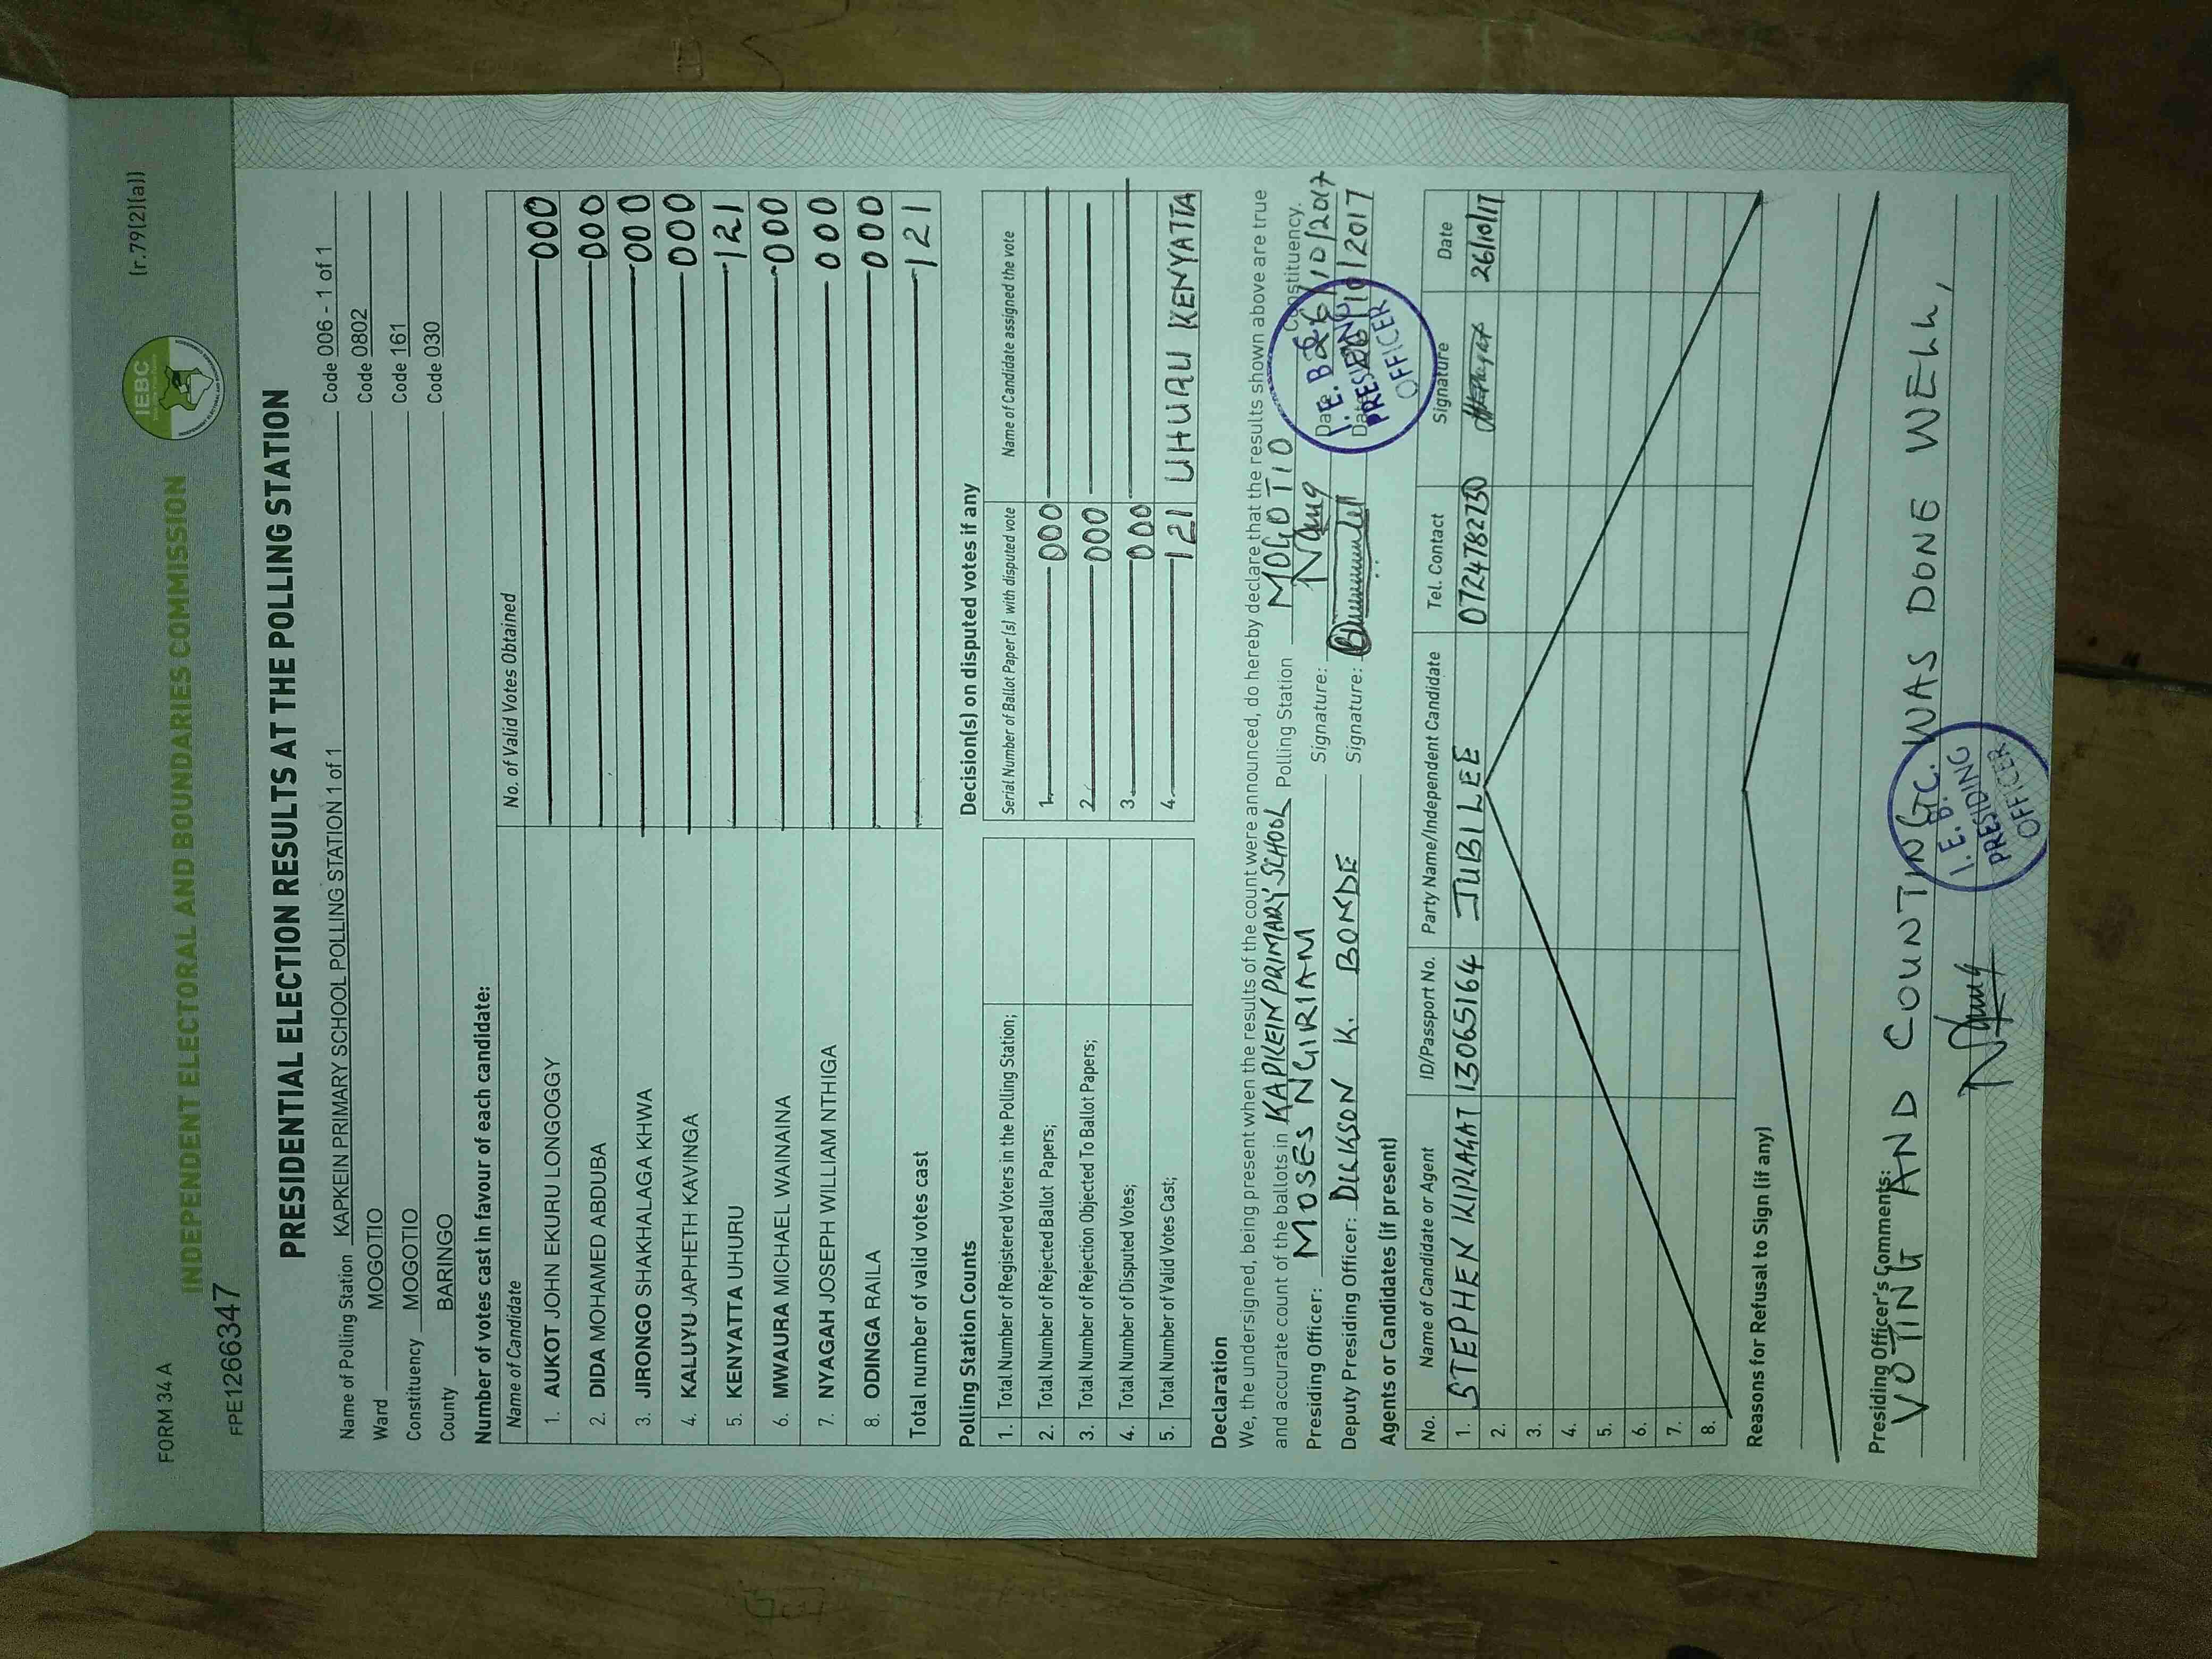 FORM 34 A
(r.79(2)(a))
IEBC
INDEPENDENT ELECTORAL AND BOUNDARIES COMMISSION
FPE1266347
PRESIDENTIAL ELECTION RESULTS AT THE POLLING STATION
Name of Polling Station KAPKEIN PRIMARY SCHOOL POLLING STATION 1 of 1 Code 006 - 1 of 1
Ward MOGOTIO Code 0802
Constituency MOGOTIO Code 161
County BARINGO Code 030
Number of votes cast in favour of each candidate:
Name of Candidate No. of Valid Votes Obtained
1. AUKOT JOHN EKURU LONGOGGY 000
2. DIDA MOHAMED ABDUBA 000
3. JIRONGO SHAKHALAGA KHWA 000
4. KALUYU JAPHETH KAVINGA 000
5. KENYATTA UHURU 121
6. MWAURA MICHAEL WAINAINA 000
7. NYAGAH JOSEPH WILLIAM NTHIGA 000
8. ODINGA RAILA 000
Total number of valid votes cast 121
Polling Station Counts
1. Total Number of Registered Voters in the Polling Station;
2. Total Number of Rejected Ballot Papers;
3. Total Number of Rejection Objected To Ballot Papers;
4. Total Number of Disputed Votes;
5. Total Number of Valid Votes Cast;
Decision(s) on disputed votes if any
Serial Number of Ballot Paper(s) with disputed vote Name of Candidate assigned the vote
1. 000
2. 000
3. 000
4. 121 UHURU KENYATTA
Declaration
We, the undersigned, being present when the results of the count were announced, do hereby declare that the results shown above are true
and accurate count of the ballots in KAPKEIN PRIMARY SCHOOL Polling Station MOGOTIO Constituency.
Presiding Officer: MOSES NGIRIAM Signature: Date 26/10/2017
Deputy Presiding Officer: DICKSON K. BONDE Signature: Date 26/10/2017
I.E.B.C.
PRESIDING
OFFICER
Agents or Candidates (if present)
No. Name of Candidate or Agent ID/Passport No. Party Name/Independent Candidate Tel. Contact Signature Date
1. STEPHEN KIPLAGAT 13065164 JUBILEE 0724782730 26/10/17
2.
3.
4.
5.
6.
7.
8.
Reasons for Refusal to Sign (if any)
Presiding Officer's Comments:
VOTING AND COUNTING WAS DONE WELL,
I.E.B.C.
PRESIDING
OFFICER